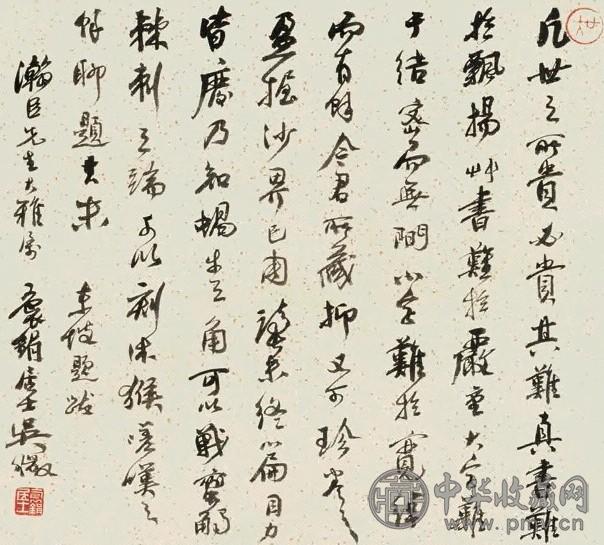 凡世之所貴必貴其難真書難
於飄揚艸書難於嚴重大字難
于結密而無間小字難於寬綽
而有餘今君所藏抑又可珍卷之
盈握沙界已周讀未終篇目力
皆廢乃知蝸牛之角可以戰蠻觸
棘刺之端可以刻沐猴嗟嘆之
餘聊題其末 東坡題跋
瀚臣先生大雅屬 袌鋗居士吳徵
袌鋗居士
中华收藏网